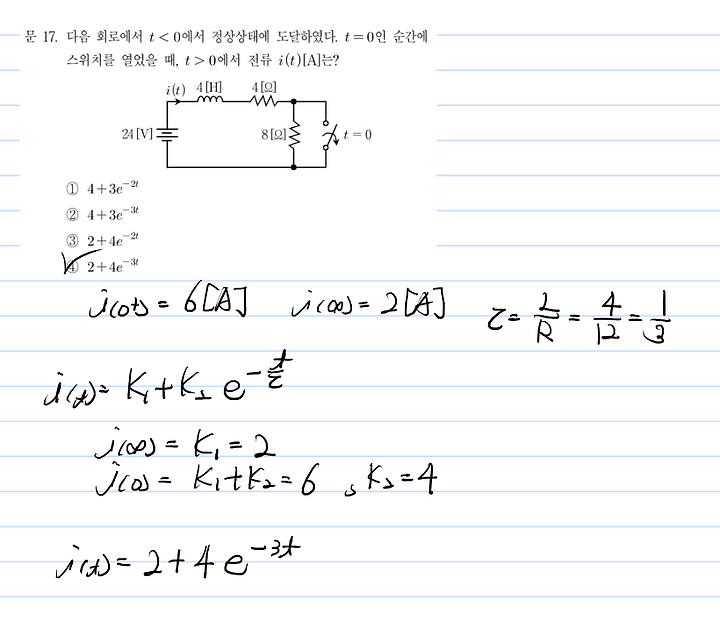 문 17. 다음 회로에서 t < 0에서 정상상태에 도달하였다. t = 0인 순간에
스위치를 열었을 때, t > 0에서 전류 i(t)[A]는?
i(t) 4[H] 4[Ω]
24[V] 8[Ω] t = 0
① 4+3e^{-2t}
② 4+3e^{-3t}
③ 2+4e^{-2t}
④ 2+4e^{-3t}
i(0+) = 6[A] i(∞) = 2[A] τ = L/R = 4/12 = 1/3
i(t) = K₁+K₂ e^{-t/τ}
i(∞) = K₁ = 2
i(0) = K₁+K₂ = 6 , K₂ = 4
i(t) = 2+4 e^{-3t}